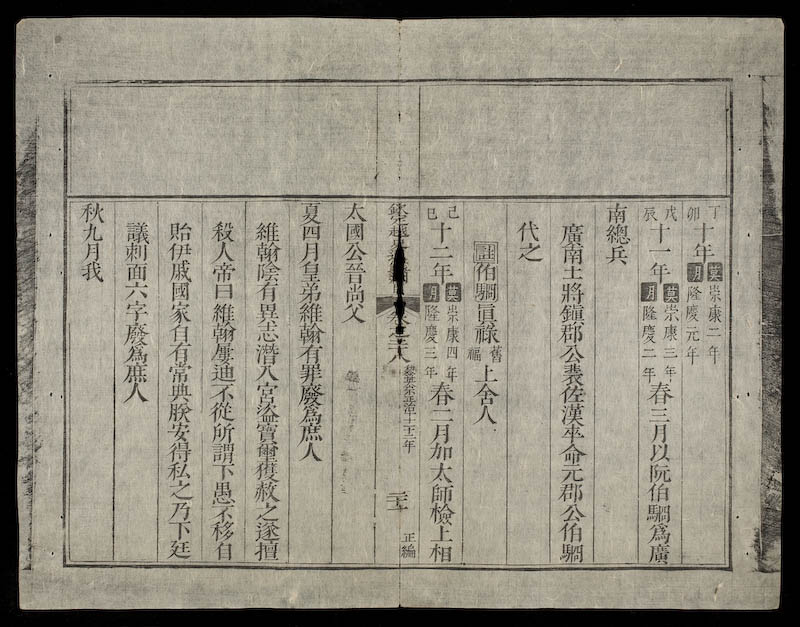 丁卯十年莫崇康二年明隆慶元年
戊辰十一年莫崇康三年明隆慶二年春三月以阮伯駧爲廣
南總兵
廣南土將鎮郡公裴佐漢卒命元郡公伯駧
代之
註伯駧眞祿舊福上舍人
己巳十二年莫崇康四年明隆慶三年春二月加太師檢上相
越卷之二十八黎英宗正治十至十二年正編
太國公晉尚父
夏四月皇弟維翰有罪廢爲庶人
維翰陰有異志潛入宮盜寶璽獲赦之遂擅
殺人帝曰維翰屢迪不從所謂下愚不移自
貽伊戚國家自有常典朕安得私之乃下廷
議刺面六字廢爲庶人
秋九月我